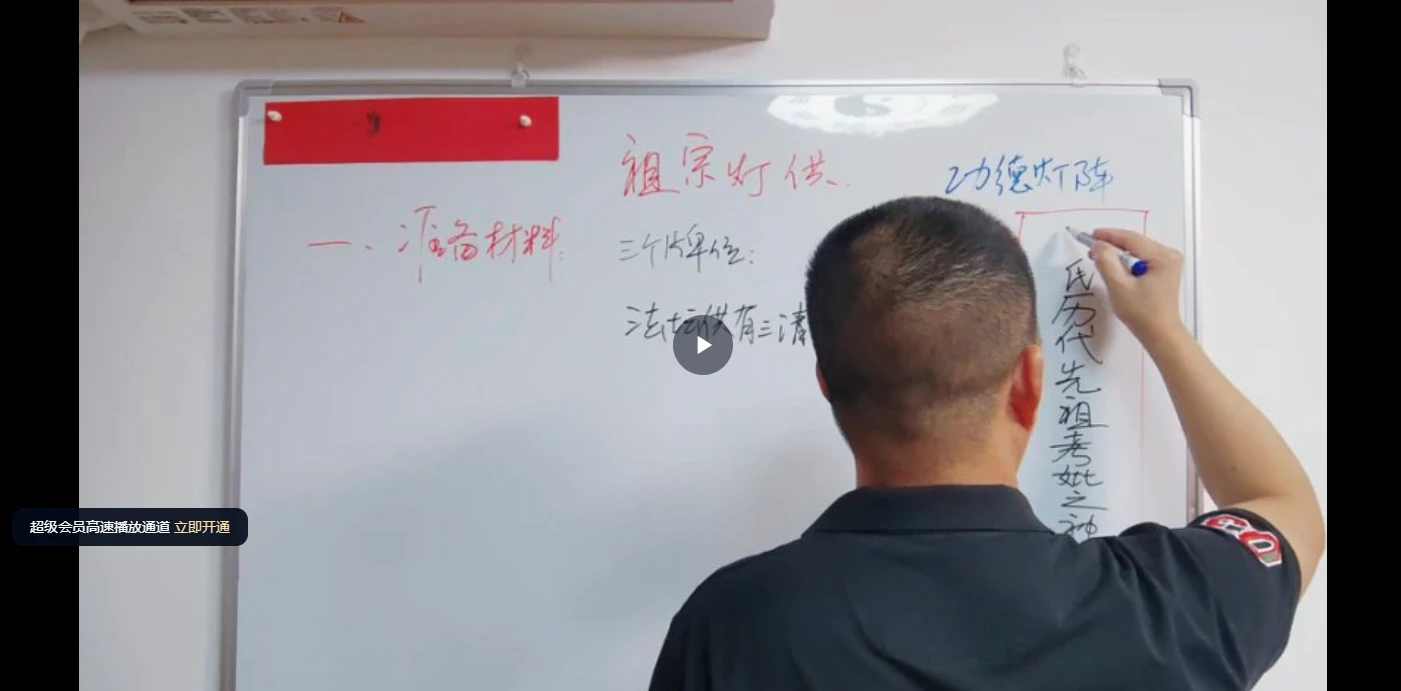 祖宗灯供.
功德灯阵
一、准备材料:
三个牌位:
法坛供有三清
氏历代先祖考妣之神
超级会员高速播放通道 立即开通